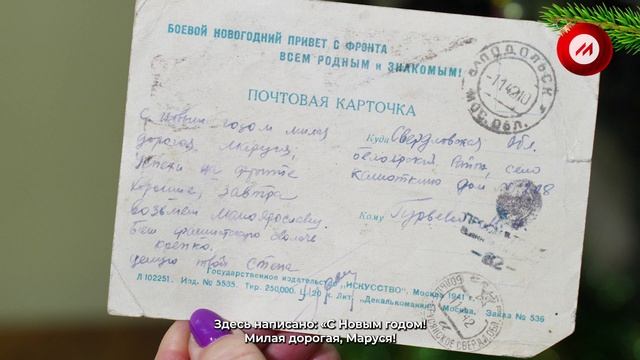 БОЕВОЙ НОВОГОДНИЙ ПРИВЕТ С ФРОНТА
ВСЕМ РОДНЫМ и ЗНАКОМЫМ!
ПОДОЛЬСК
ПОЧТОВАЯ КАРТОЧКА
С Новым годом милая
дорогая Маруся,
Успехи на фронте
хорошие, завтра
возьмем Малоярославец.
Бьем фашистскую сволочь
крепко.
целую твой Степа
Куда Свердловская обл.
село
дом
Кому Гурьевой
Государственное издательство „ИСКУССТВО“. Москва 1941 г.
Л 102251. Изд. № 5535. Тир. 250.000. Лит. „Декалькомания“, Москва. Заказ № 536
Здесь написано: «С Новым годом!
Милая дорогая, Маруся!